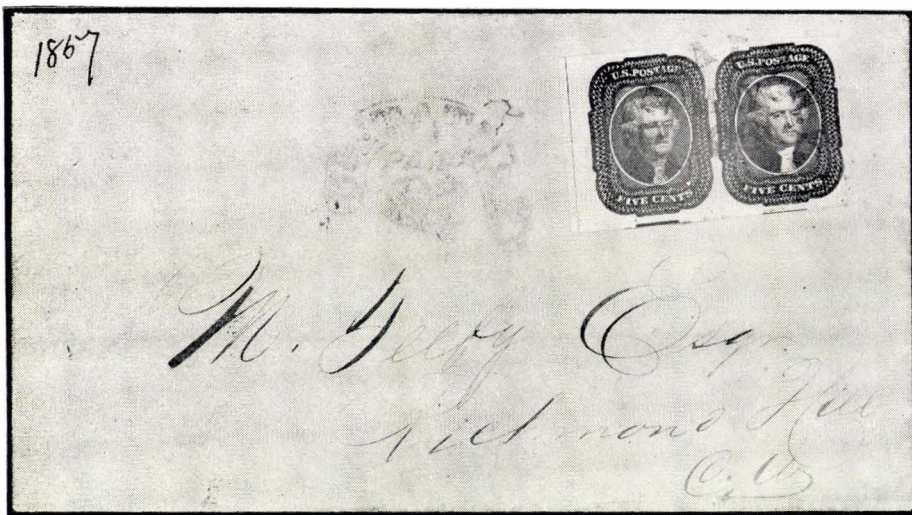 1867
U.S. POSTAGE
FIVE CENTS
U.S. POSTAGE
FIVE CENTS
M. Teefy Esq.
Richmond Hill
C. W.